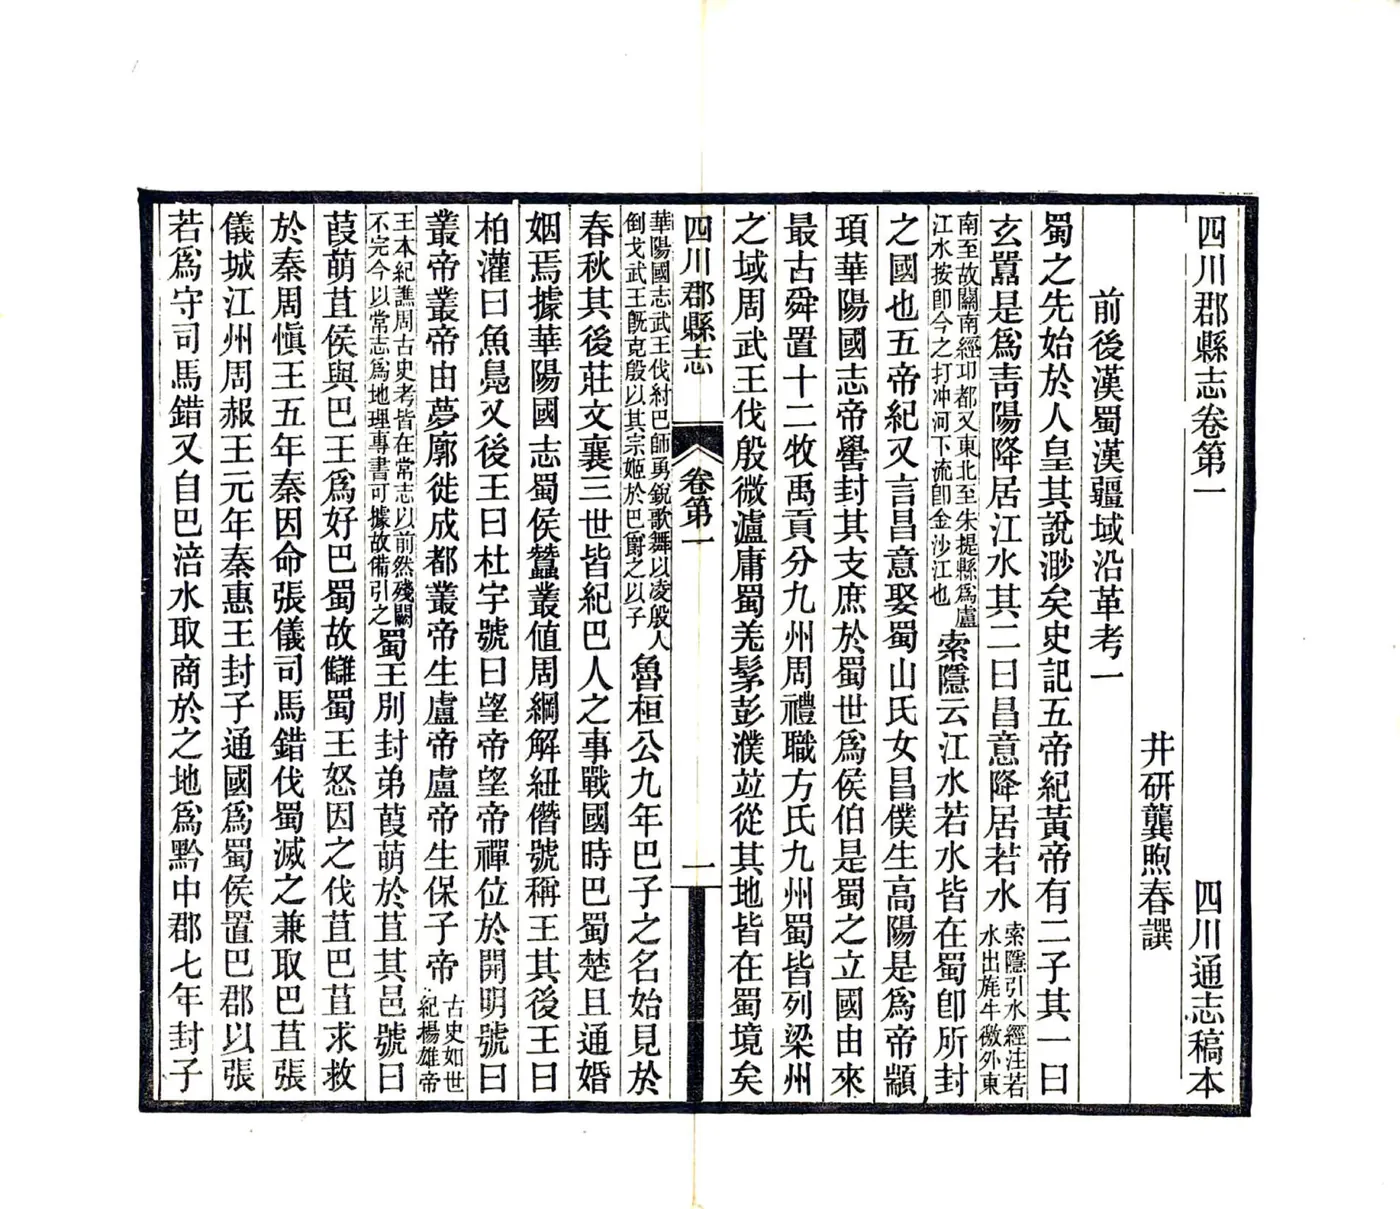 四川郡縣志卷第一 四川通志稿本
井研龔煦春譔
前後漢蜀漢疆域沿革考一
蜀之先始於人皇其說渺矣史記五帝紀黃帝有二子其一曰
玄囂是爲靑陽降居江水其二曰昌意降居若水索隱引水經注若水出旄牛徼外東
南至故關南經卭都又東北至朱提縣爲盧江水按卽今之打冲河下流卽金沙江也索隱云江水若水皆在蜀卽所封
之國也五帝紀又言昌意娶蜀山氏女昌僕生高陽是爲帝顓
頊華陽國志帝嚳封其支庶於蜀世爲侯伯是蜀之立國由來
最古舜置十二牧禹貢分九州周禮職方氏九州蜀皆列梁州
之域周武王伐殷微瀘庸蜀羌髳彭濮竝從其地皆在蜀境矣
四川郡縣志 卷第一 一
華陽國志武王伐紂巴師勇銳歌舞以凌殷人倒戈武王旣克殷以其宗姬於巴爵之以子魯桓公九年巴子之名始見於
春秋其後莊文襄三世皆紀巴人之事戰國時巴蜀楚且通婚
姻焉據華陽國志蜀侯蠶叢値周綱解紐僭號稱王其後王曰
柏灌曰魚鳧又後王曰杜宇號曰望帝望帝禪位於開明號曰
叢帝叢帝由夢廓徙成都叢帝生盧帝盧帝生保子帝古史如世紀楊雄帝
王本紀譙周古史考皆在常志以前然殘闕不完今以常志爲地理專書可據故備引之蜀王別封弟葭萌於苴其邑號曰
葭萌苴侯與巴王爲好巴蜀故讎蜀王怒因之伐苴巴苴求救
於秦周愼王五年秦因命張儀司馬錯伐蜀滅之兼取巴苴張
儀城江州周赧王元年秦惠王封子通國爲蜀侯置巴郡以張
若爲守司馬錯又自巴涪水取商於之地爲黔中郡七年封子